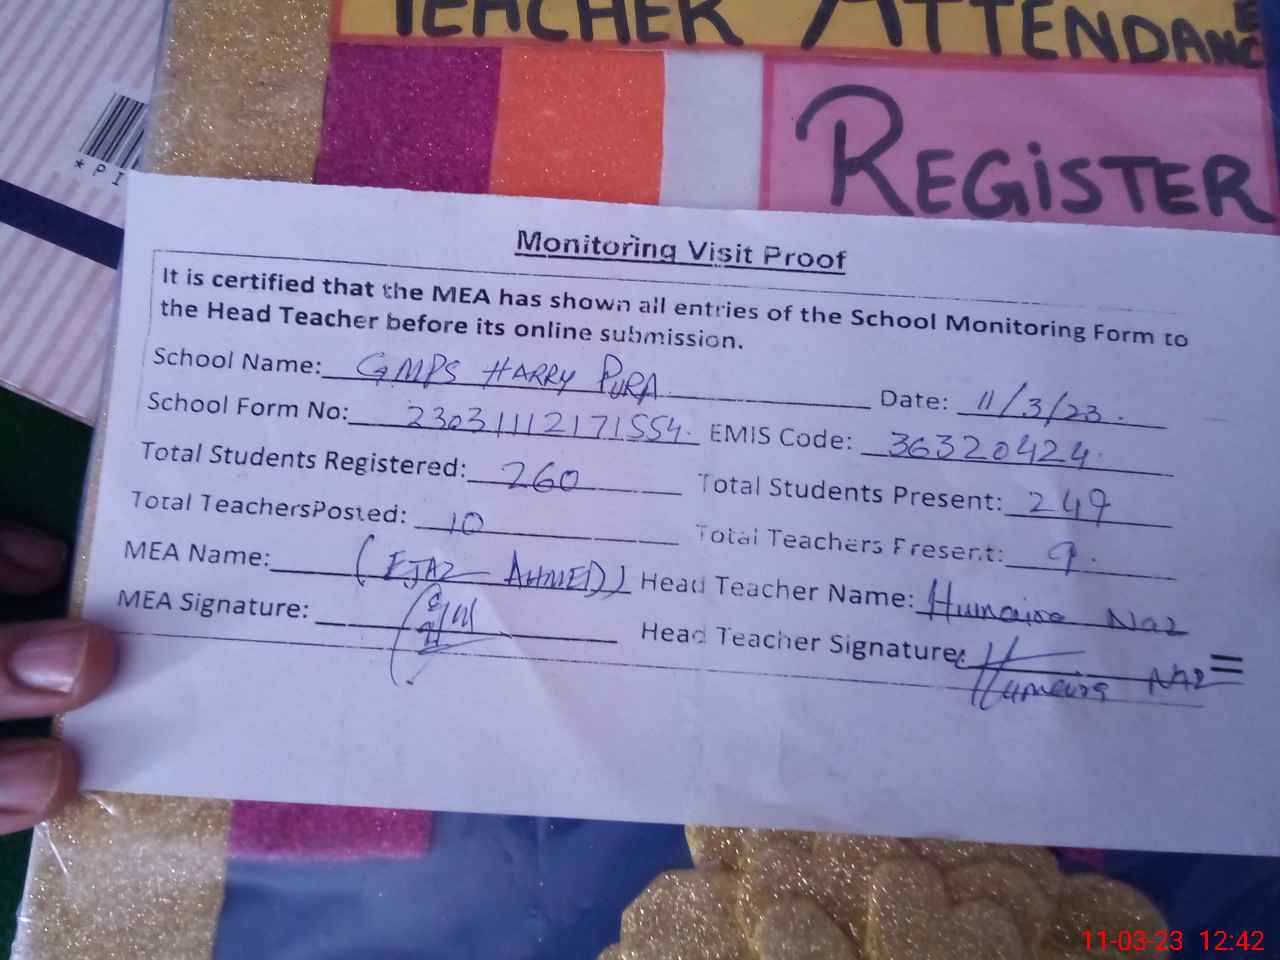 TEACHER ATTENDANCE
REGISTER
* P I
Monitoring Visit Proof
It is certified that the MEA has shown all entries of the School Monitoring Form to
the Head Teacher before its online submission.
School Name: GMPS HARRY PURA Date: 11/3/23.
School Form No: 23031112171554. EMIS Code: 36320424.
Total Students Registered: 260 Total Students Present: 249
Total TeachersPosted: 10 Total Teachers Present: 9.
MEA Name: (EJAZ AHMED) Head Teacher Name: Humaira Naz
MEA Signature: Head Teacher Signature:
Humaira Naz
11-03-23 12:42